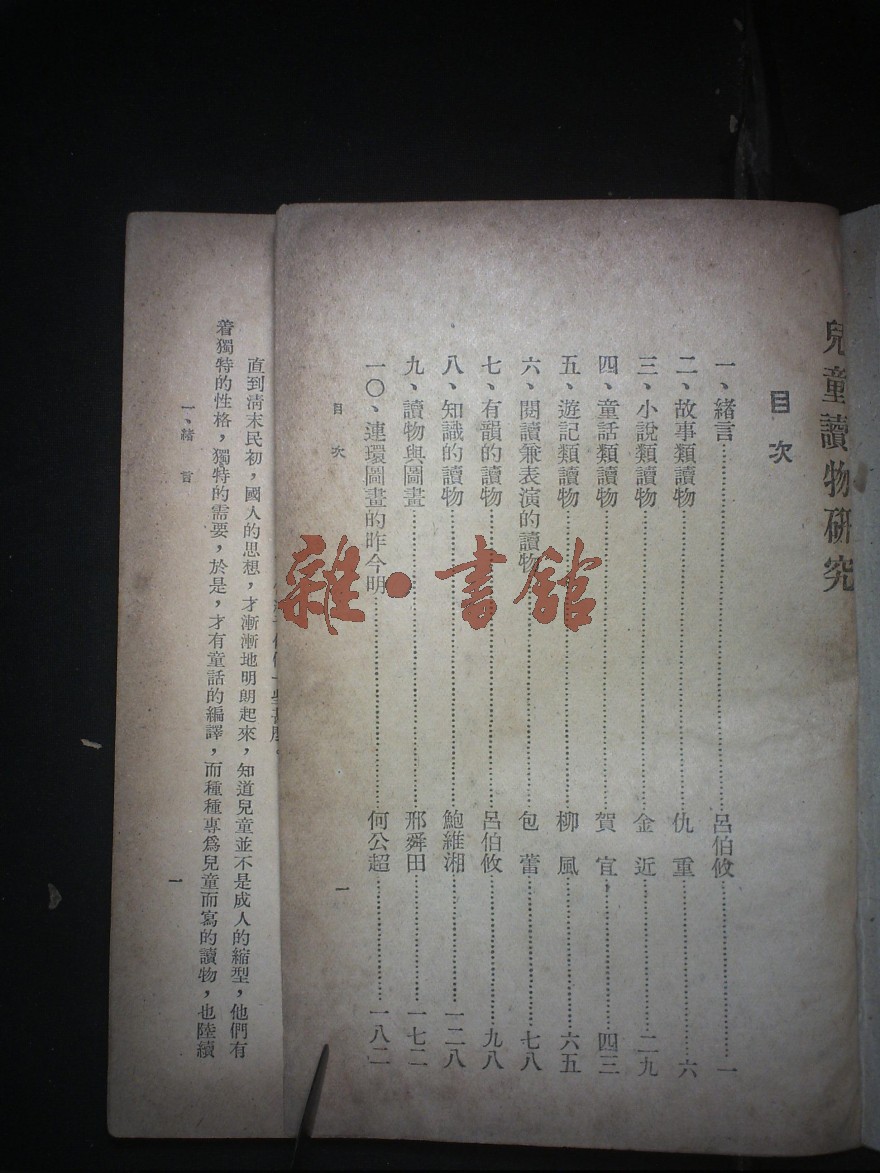 兒童讀物研究
目次
一、緒言……呂伯攸……一
二、故事類讀物……仇重……六
三、小說類讀物……金近……二九
四、童話類讀物……賀宜……四三
五、遊記類讀物……柳風……六五
六、閱讀兼表演的讀物……包蕾……七八
七、有韻的讀物……呂伯攸……九八
八、知識的讀物……鮑維湘……一二八
九、讀物與圖畫……邢舜田……一七二
一〇、連環圖畫的昨今明……何公超……一八二
目次
一
直到清末民初，國人的思想，才漸漸地明朗起來，知道兒童並不是成人的縮型，他們有
着獨特的性格，獨特的需要，於是，才有童話的編譯，而種種專爲兒童而寫的讀物，也陸續
一、緒言
一
雜·書館